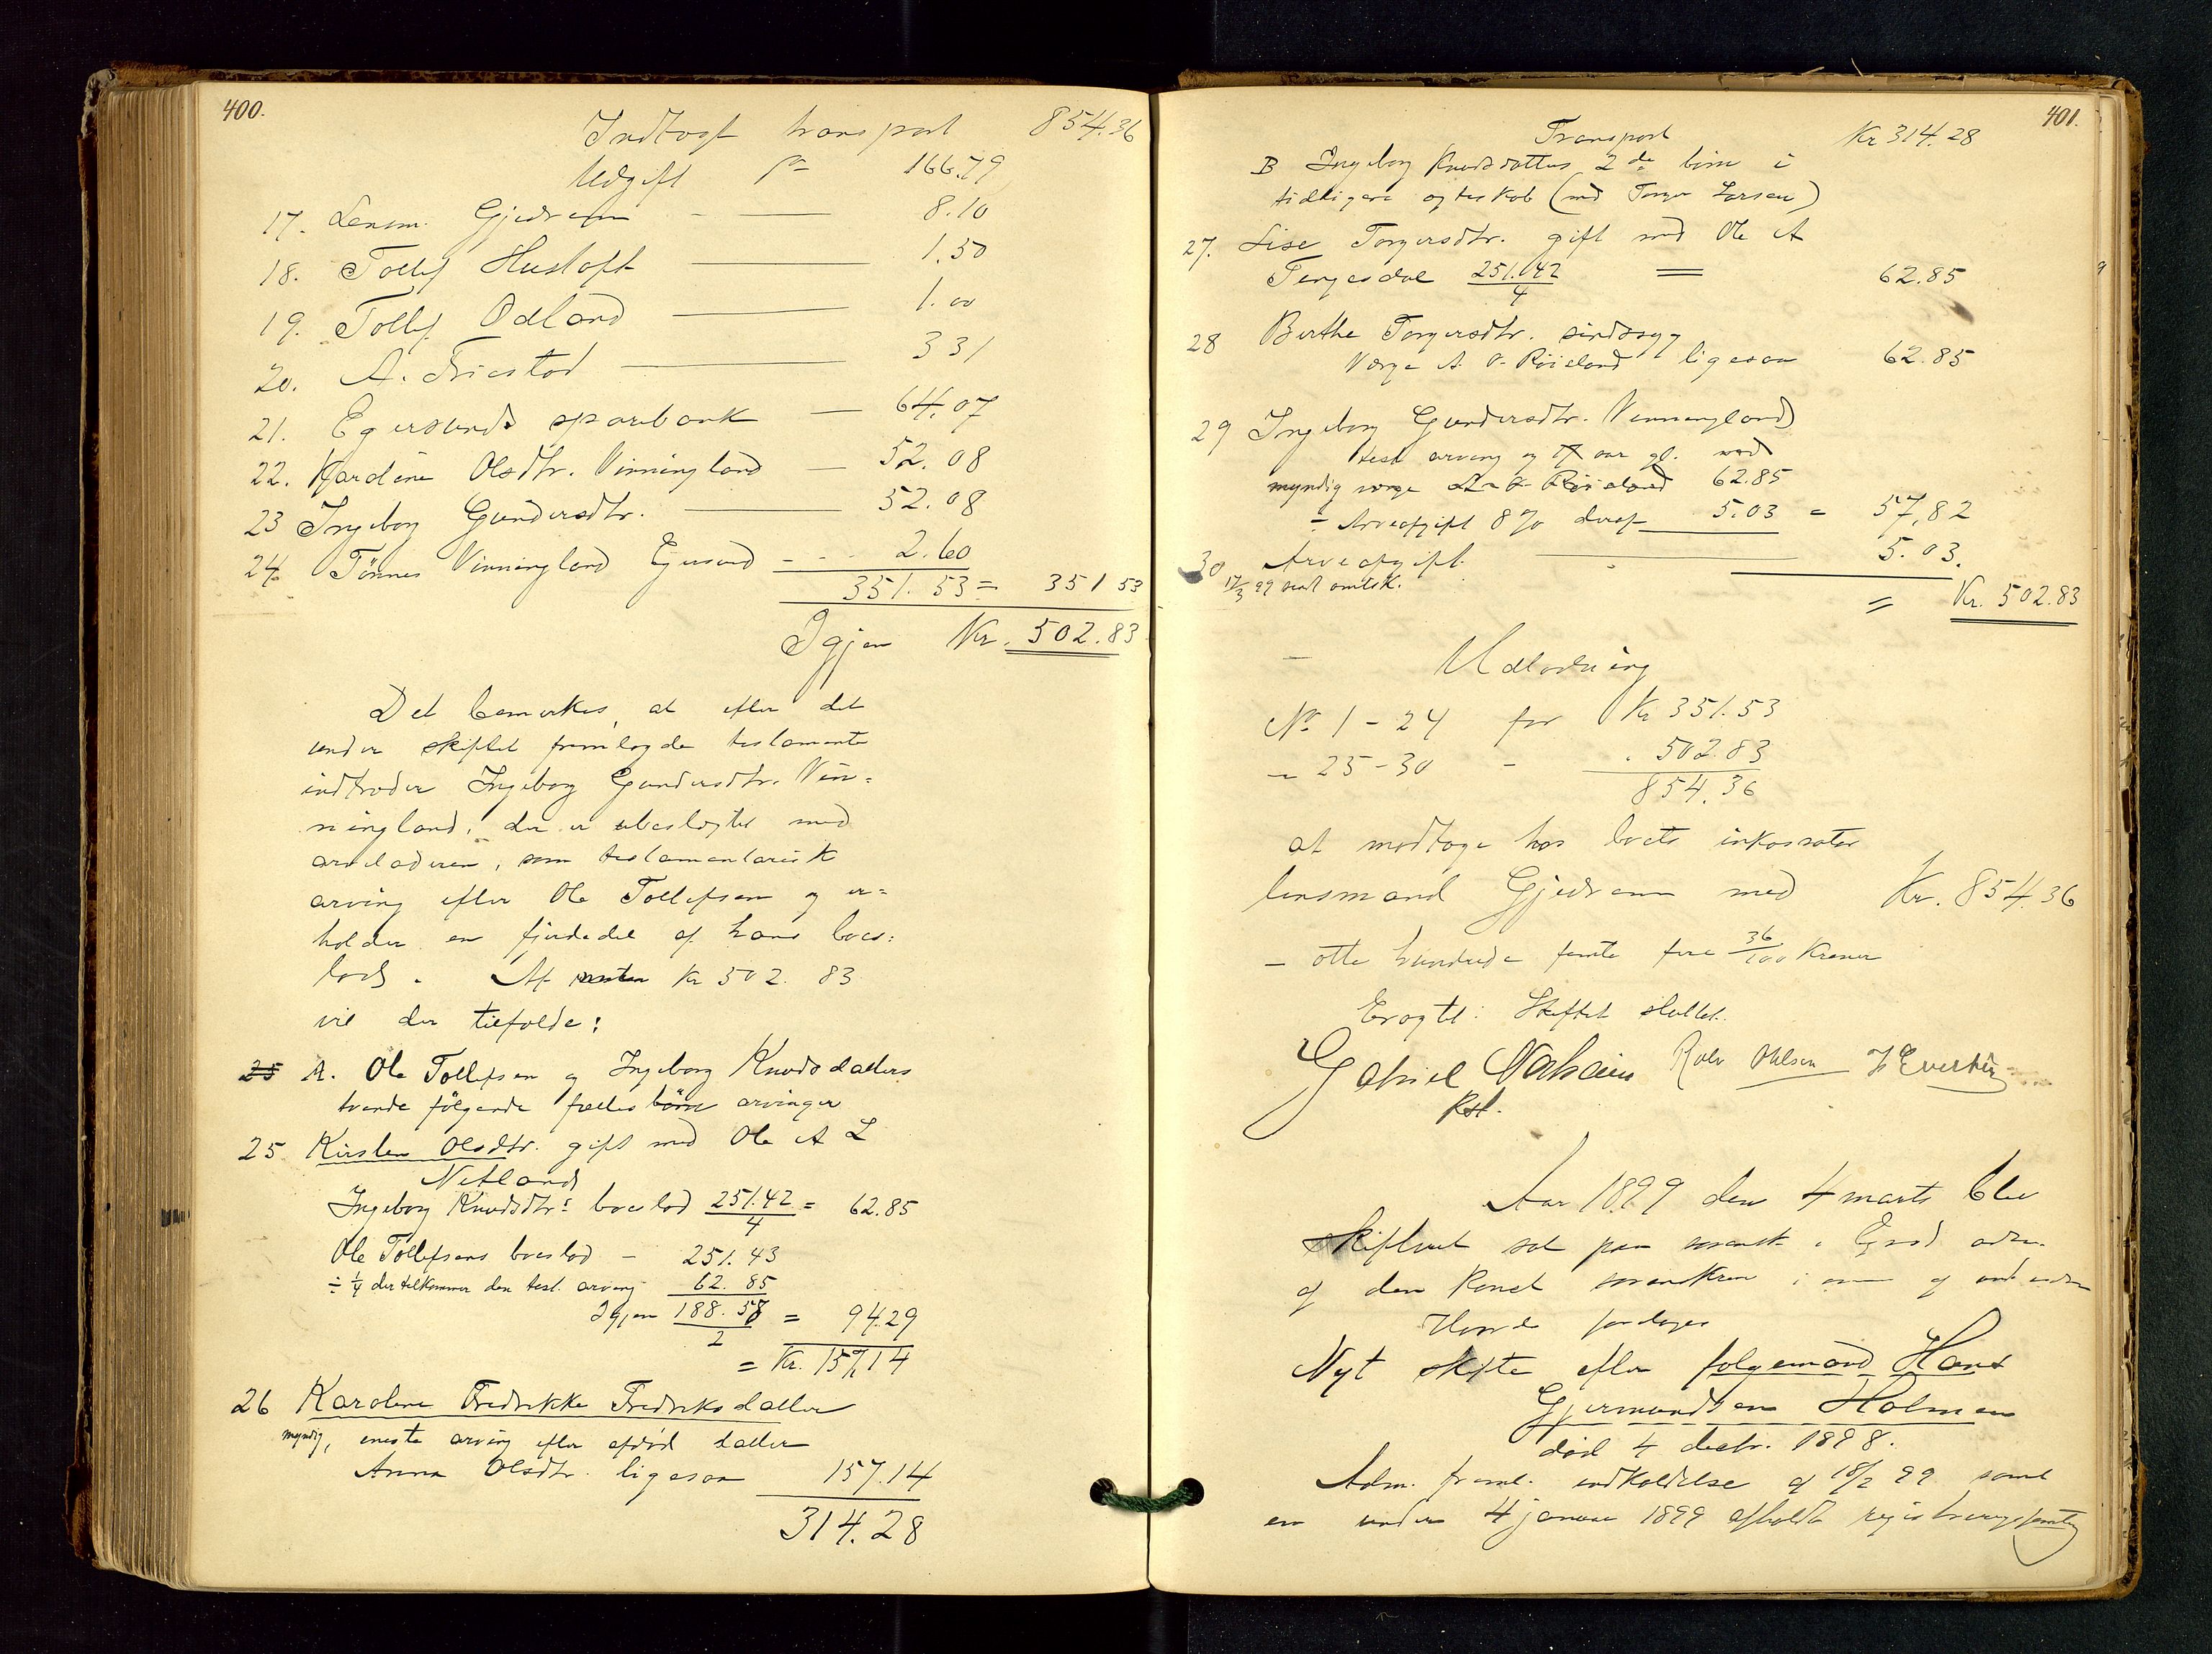 400.
Indtægt transport 854.36
Udgift 166.79
17. Lensm. Gjedrem - 8.10
18. Tollef Husloft 1.50
19. Tollef Odland 1.00
20. A. Frestad 3 31
21. Egersunds sparebank - 64.07
22. Kardine Olsdtr. Vinningland - 52.08
23 Ingeborg Gundersdtr. 52.08
24. Tønnes Vinningland Egersund - 2.60
351.53 = 351 53
Igjen Kr. 502.83
Det bemerkes, at efter det
under skiftet fremlagde testamente
indtræder Ingeborg Gundersdtr. Vin-
ningland, der er ubeslægtet med
arveladeren, som testamentarisk
arving efter Ole Tollefsen og er-
holder en fjerdedel af hans boes-
lod. Af resten Kr 502.83
vil der tilfalde:
25 A. Ole Tollefsen og Ingeborg Knudsdatters
tvende følgende fælles børn arvinger
25 Kirsten Olsdtr. gift med Ole A L
Netland
Ingeborg Knudsdtrs boeslod 251.42/4 = 62.85
Ole Tollefsens boeslod - 251.43
÷ 1/4 der tilkommer den test. arving 62.85
Igjen 188.58/2 = 94.29
= Kr. 157.14
26 Karoline Fredrikke Fredriksdatter
myndig, eneste arving efter afdød datter
Anna Olsdtr. ligesaa 157.14
314.28
401.
Transport Kr 314.28
B Ingeborg Knudsdatters 2de børn i
tidligere egteskab (med Torger Larsen)
27. Lise Torgersdtr. gift med Ole A
Tengesdal 251.42/4 = 62.85
28 Berthe Torgersdtr. sindssyg
Værge A. O. Røiseland ligesaa 62.85
29 Ingeborg Gundersdtr. Vinningland
test. arving og 17 aar gl. med
myndig værge A. O. Røiseland 62.85
÷ Arveafgift 8% deraf 5.03 = 57.82
30 Arveafgift 5.03.
17/3 99 sendt amtsk.
= Kr. 502.83
Udlodning
No 1 - 24 for Kr 351.53
- 25-30 - . 502.83
854.36
at modtage hos boets inkassator
lensmand Gjedrem med Kr. 854.36
- otte hundrede femti fire 36/100 Kroner
Eragtet: Skiftet sluttet.
Gabriel
Rolv Ohlsen
Aar 1899 den 4 marts blev
skifteret sat paa i
af den Konst. sorenskriver i og
Hvorda foretages
Nyt skifte efter følgemand Hans
Gjermundsen Holmen
død 4 decbr. 1898.
Adm. freml. indkaldelse af 18/2 99 samt
en under 4 januar 1899 afholdt